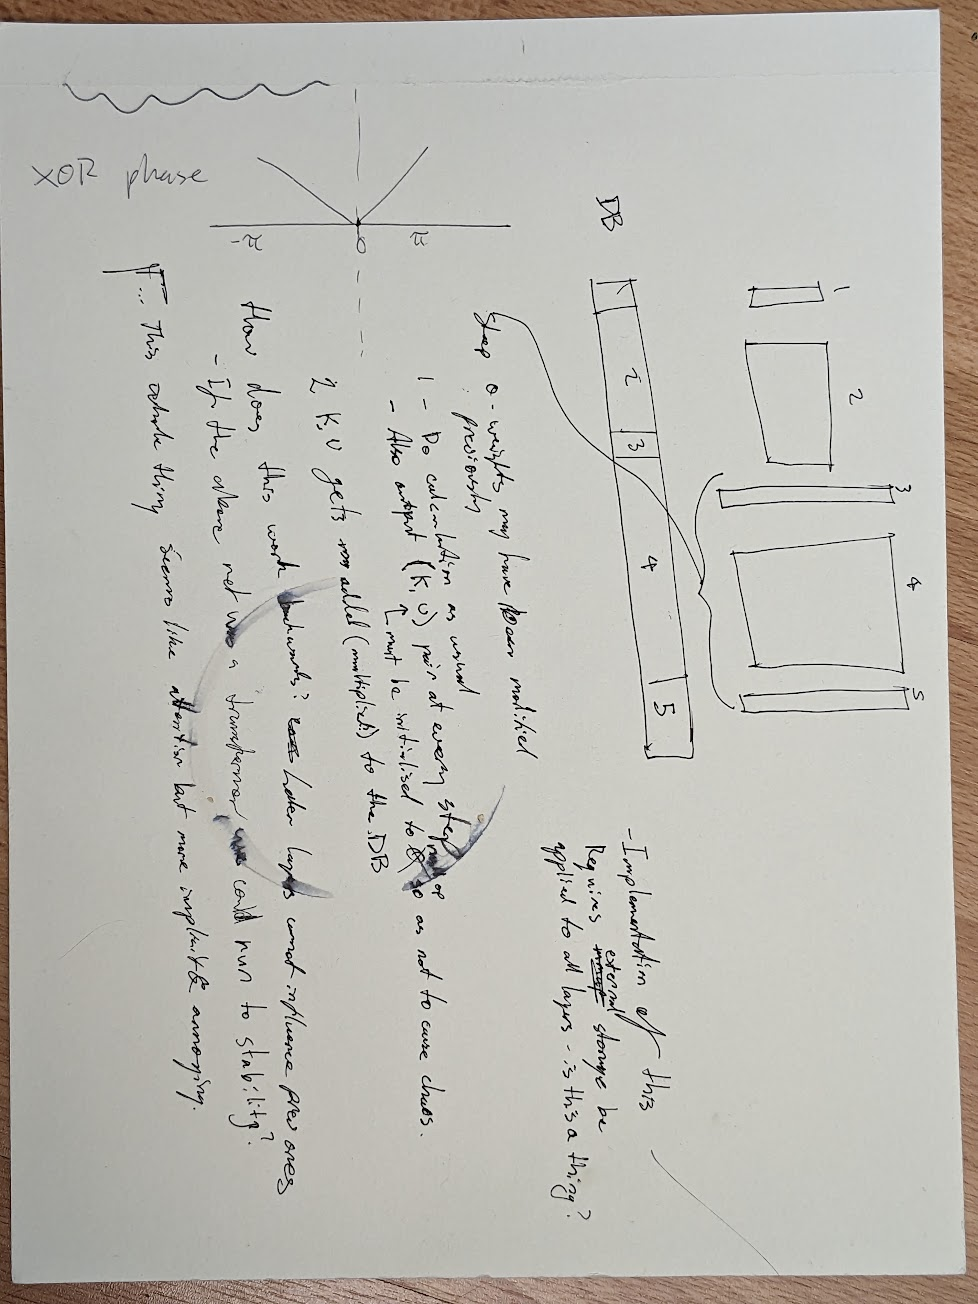 1 2 3 4 5
DB 1 2 3 4 5
- Implementation of this
Requires external storage be
applied to all layers - is this a thing?
Step 0 - weights may have been modified
previously
1 - Do calculation as usual
- Also output (K, V) pair at every step
↑ must be initialised to so as not to cause chaos.
2 K, V gets added (multiplied) to the DB
How does this work backwards? Later layers cannot influence prev ones
- If the above net was a transformer we could run to stability?
... This whole thing seems like attention but more implicit & annoying.
-π 0 π
XOR phase